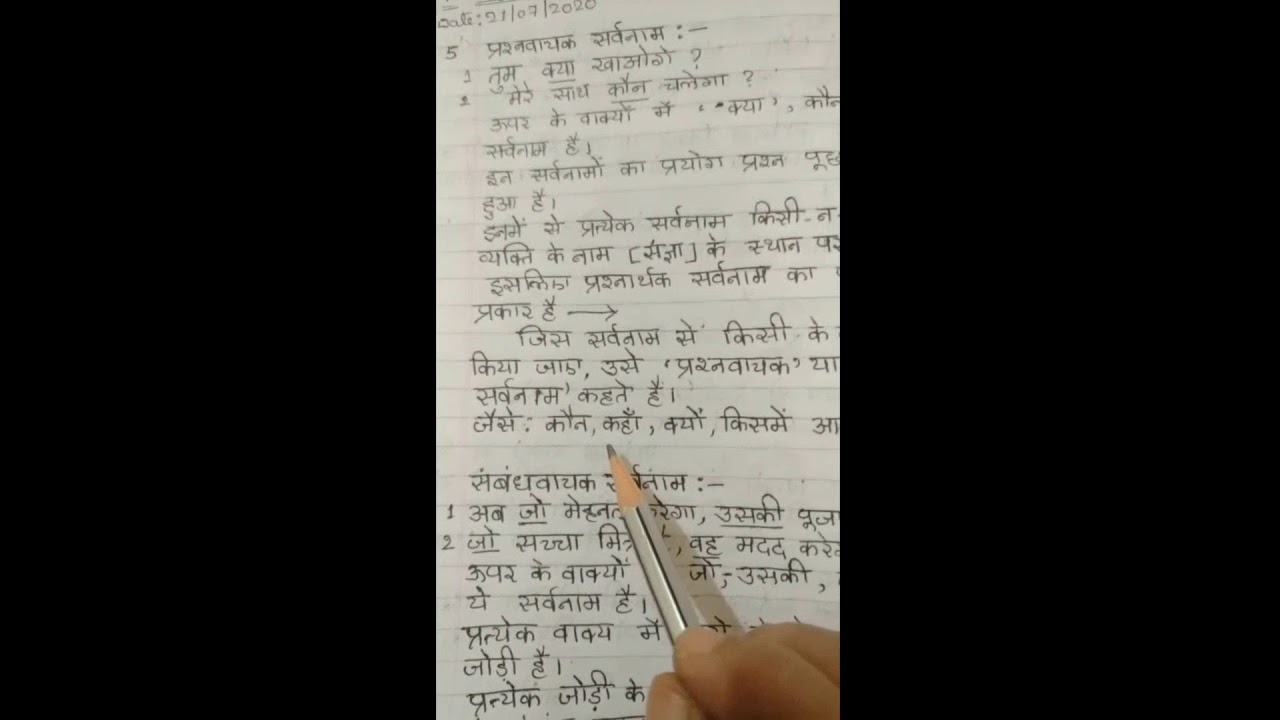 Date: 21/07/2020
5 प्रश्नवाचक सर्वनाम :-
1 तुम क्या खाओगे ?
2 मेरे साथ कौन चलेगा ?
ऊपर के वाक्यों में ‘क्या’, कौन
सर्वनाम है।
इन सर्वनामों का प्रयोग प्रश्न पूछ
हुआ है।
इनमें से प्रत्येक सर्वनाम किसी-न-
व्यक्ति के नाम [संज्ञा] के स्थान पर
इसलिए प्रश्नार्थक सर्वनाम का
प्रकार है →
जिस सर्वनाम से किसी के
किया जाए, उसे ‘प्रश्नवाचक’ या
सर्वनाम’ कहते है।
जैसे: कौन, कहाँ, क्यों, किसमें आ
संबंधवाचक सर्वनाम :-
1 अब जो मेहनत करेगा, उसकी पूजा
2 जो सच्चा मित्र है, वह मदद करेग
ऊपर के वाक्यों जो, उसकी,
ये सर्वनाम है।
प्रत्येक वाक्य में
जोड़ी है।
प्रत्येक जोड़ी के